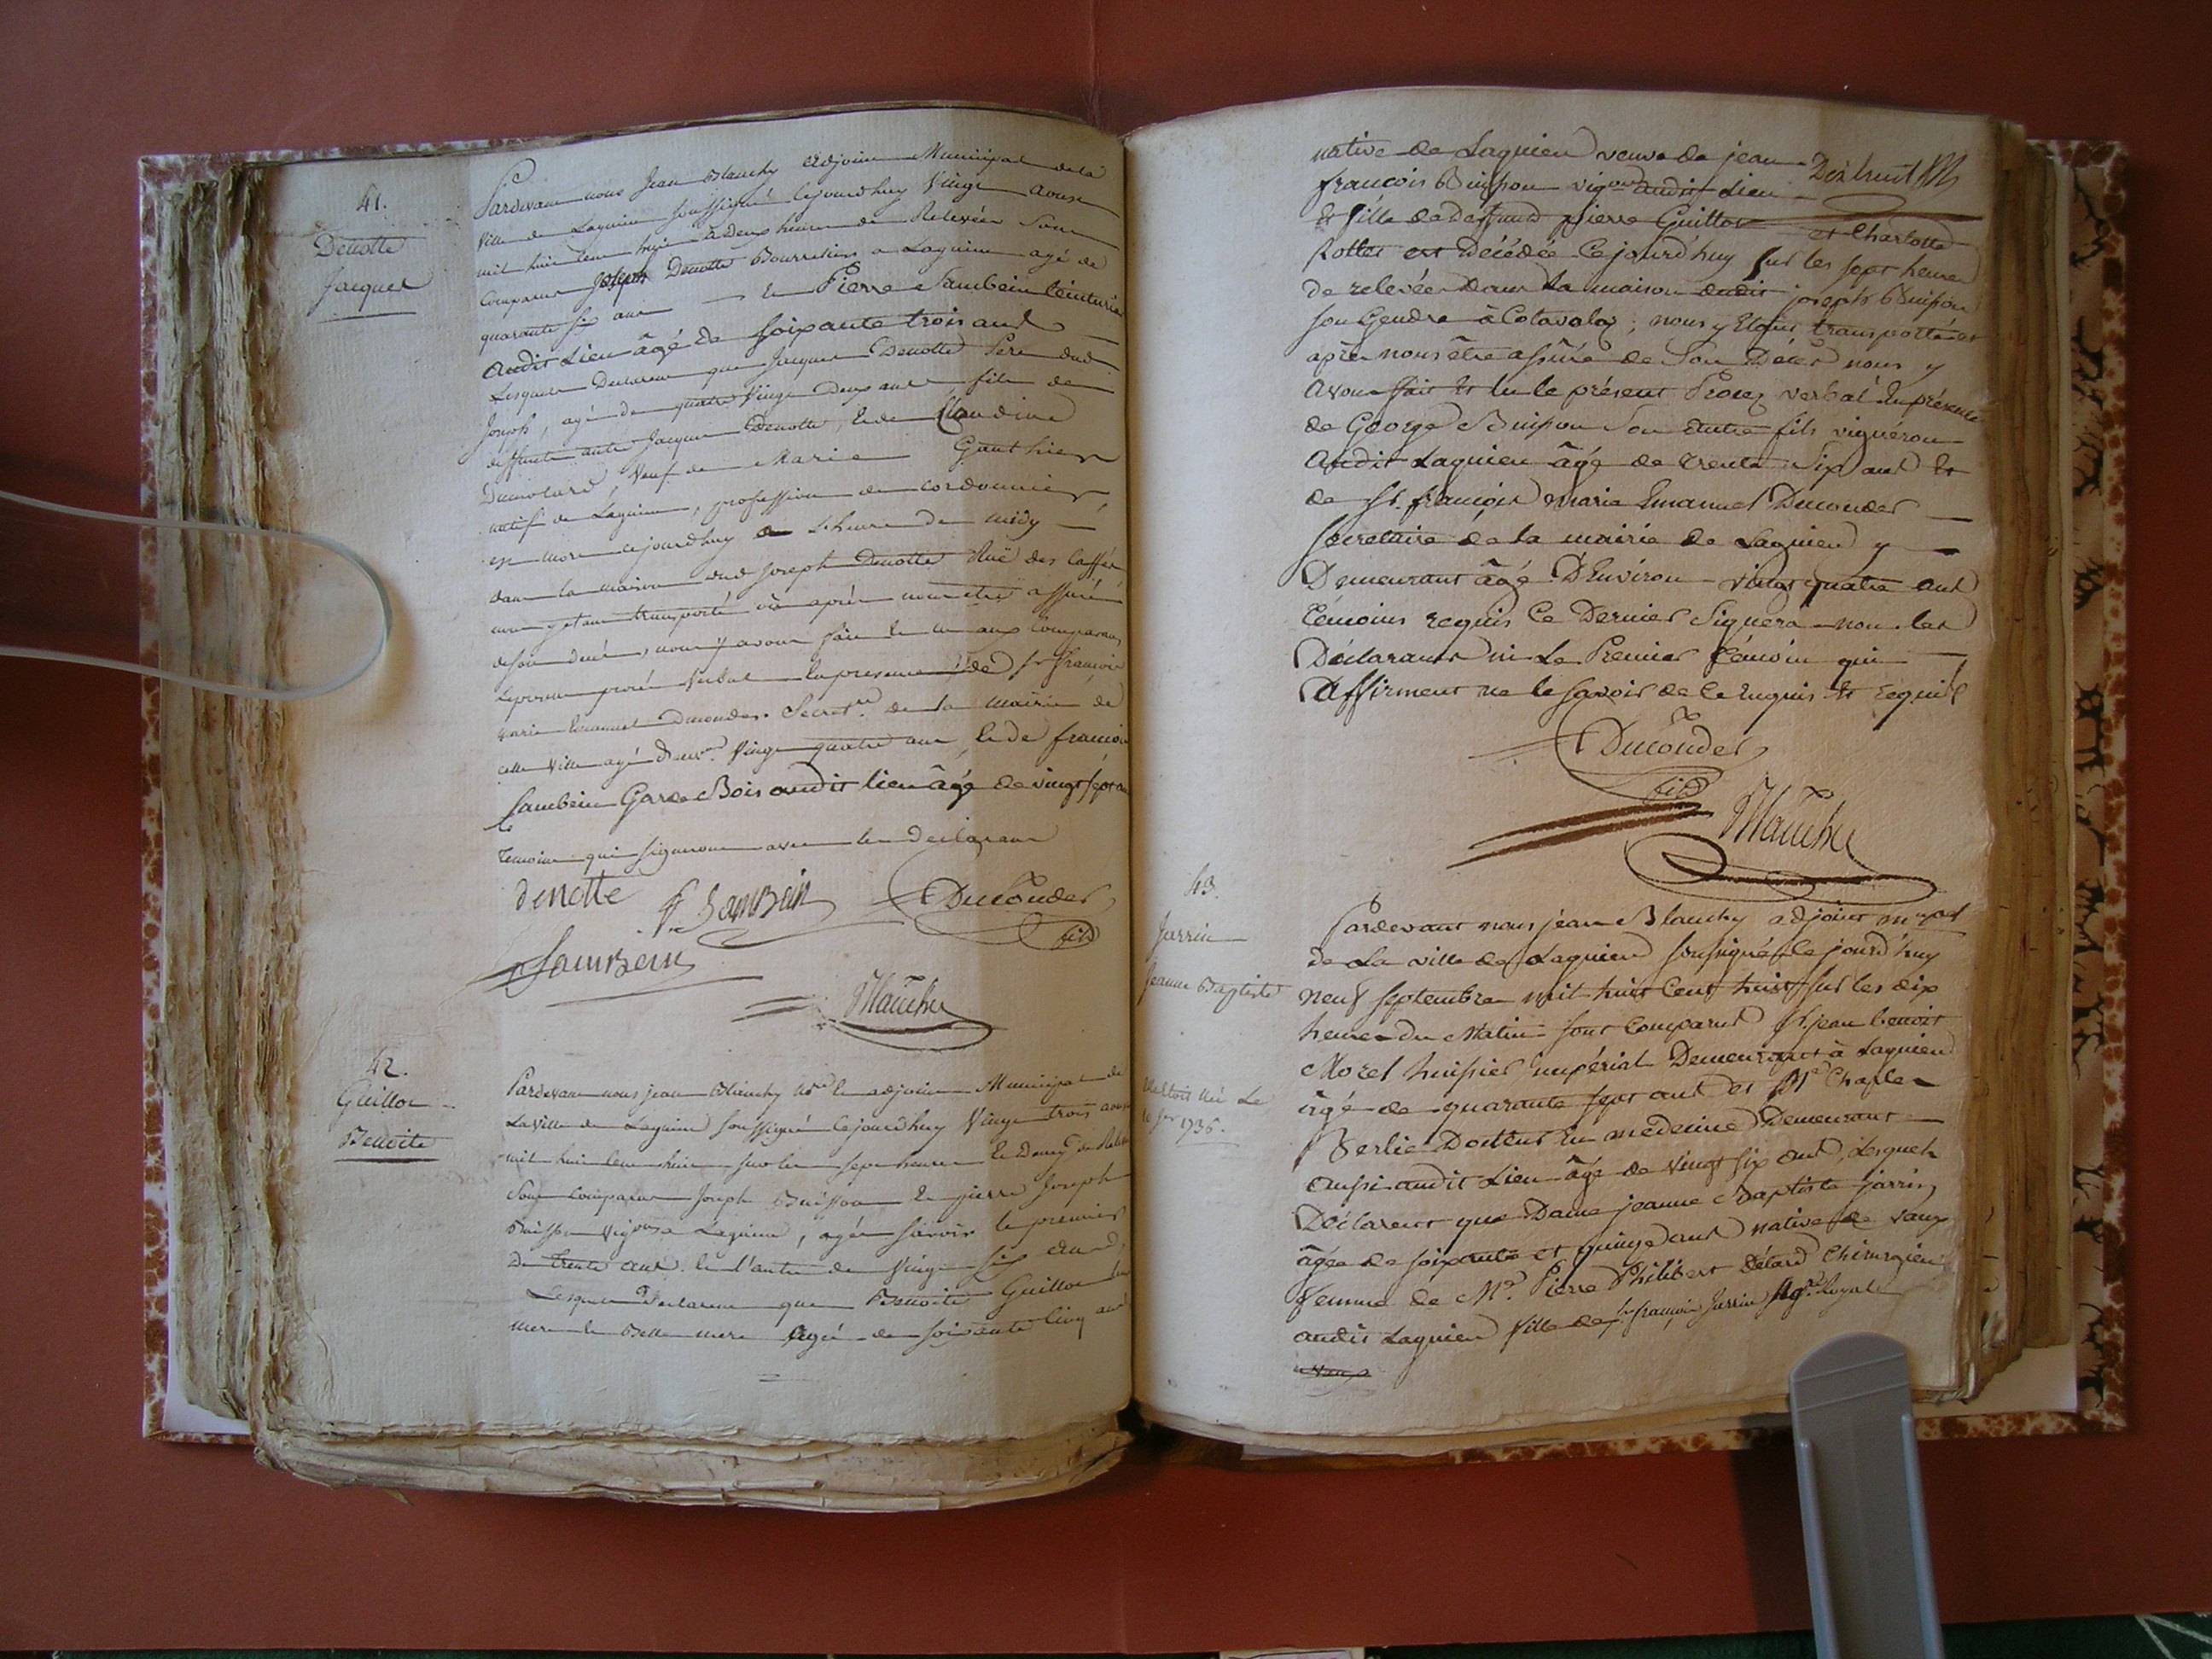 41.
Denotte
Jacques
Pardevant nous Jean Blanchy adjoint Municipal de la
ville de Lagnieu soussigné cejourdhuy Vingt Aoust
mil huit cent huit à deux heures de Relevée Sont
Comparus Joseph Denotte Bourrelier a Lagnieu agé de
quarante six ans et Pierre Sambein
audit Lieu âgé de soixante trois ans
Lesquels Declarent que Jacques Denotte Pere dud
Joseph, agé de quatre Vingt Deux ans fils de
deffunts autre Jacques Denotte, et de Claudine
Dumolard, Veuf de Marie Gauthier
natif de Lagnieu, profession de cordonnier
est mort cejourdhuy a L'heure de midy
dans la maison dud Joseph Denotte Ruë des
nous y etant transporté où après nous etre assuré
de son decés, nous y avons fait et lu aux Comparans
Le present procés Verbal En presence de Sr françois
marie Emanuel Ducondes Secret.re de la mairie de
cette ville agé d'env. Vingt quatre ans, et de francois
Sambein Garde Bois audit lieu âgé de vingt sept ans
Temoins qui signeront avec les declarans
denotte f. SamBein Ducondes
fils
SamBein
Blanchy
42.
Guillot
Benoite
Pardevant nous jean Blanchy adjoint Municipal de
La ville de Lagnieu soussigné Cejourdhuy Vingt trois aoust
mil huit cent huit sur les sept heures Et Demy de Relevée
Sont Comparus Joseph Buisson et pierre Joseph
Buisson a Lagnieu, agés savoir le premier
De trente ans et l'autre de Vingt six ans,
Lesquels Declarent que Benoite Guillot leur
mere et Belle mere agée de soixante Cinq ans
native de Lagnieu veuve de jean
françois Buisson vigneron audit Lieu
et fille de deffunts Pierre Guillot et Charlotte
Rollet est Décédée Cejourd'huy sur les sept heures
de relevée dans la maison dudit joseph Buisson
son Gendre à ; nous y Etant transporté et
après nous être assuré de Son Décès nous y
avons fait et lu le présent Procez verbal En présence
de George Buisson Son Autre fils vigneron
audit Lagnieu âgé de trente Six ans et
de Sr. françois Marie Emanuel Ducondes
Secretaire de la mairie de Lagnieu y
Demeurant âgé D'Environ vingt quatre ans
témoins requis Ce Dernier Signera non les
Déclarants ni Le Premier témoin qui
Affirment ne le savoir de ce Enquis et requis
Ducondes
fils
Blanchy
43.
Jarrin
Jeanne Baptiste
né Le
1736.
Pardevant nous jean Blanchy adjoint mpal
de La ville de Lagnieu soussigné Ce jourd'huy
neuf septembre mil huit Cent huit sur les dix
heures du Matin sont Comparus Sr. jean benoit
Morel huissier impérial Demeurant à Lagnieu
âgé de quarante sept ans et Mr Charles
Berlie Docteur En medecine Demeurant
aussi audit Lieu âgé de vingt six ans, Lesquels
Déclarent que Dame jeanne Baptiste jarrin
âgée de soixante et quinze ans native de vaux
femme de Mr. Pierre Philibert Chirurgien
audit Lagnieu fille de Sr françois Jarrin Royal